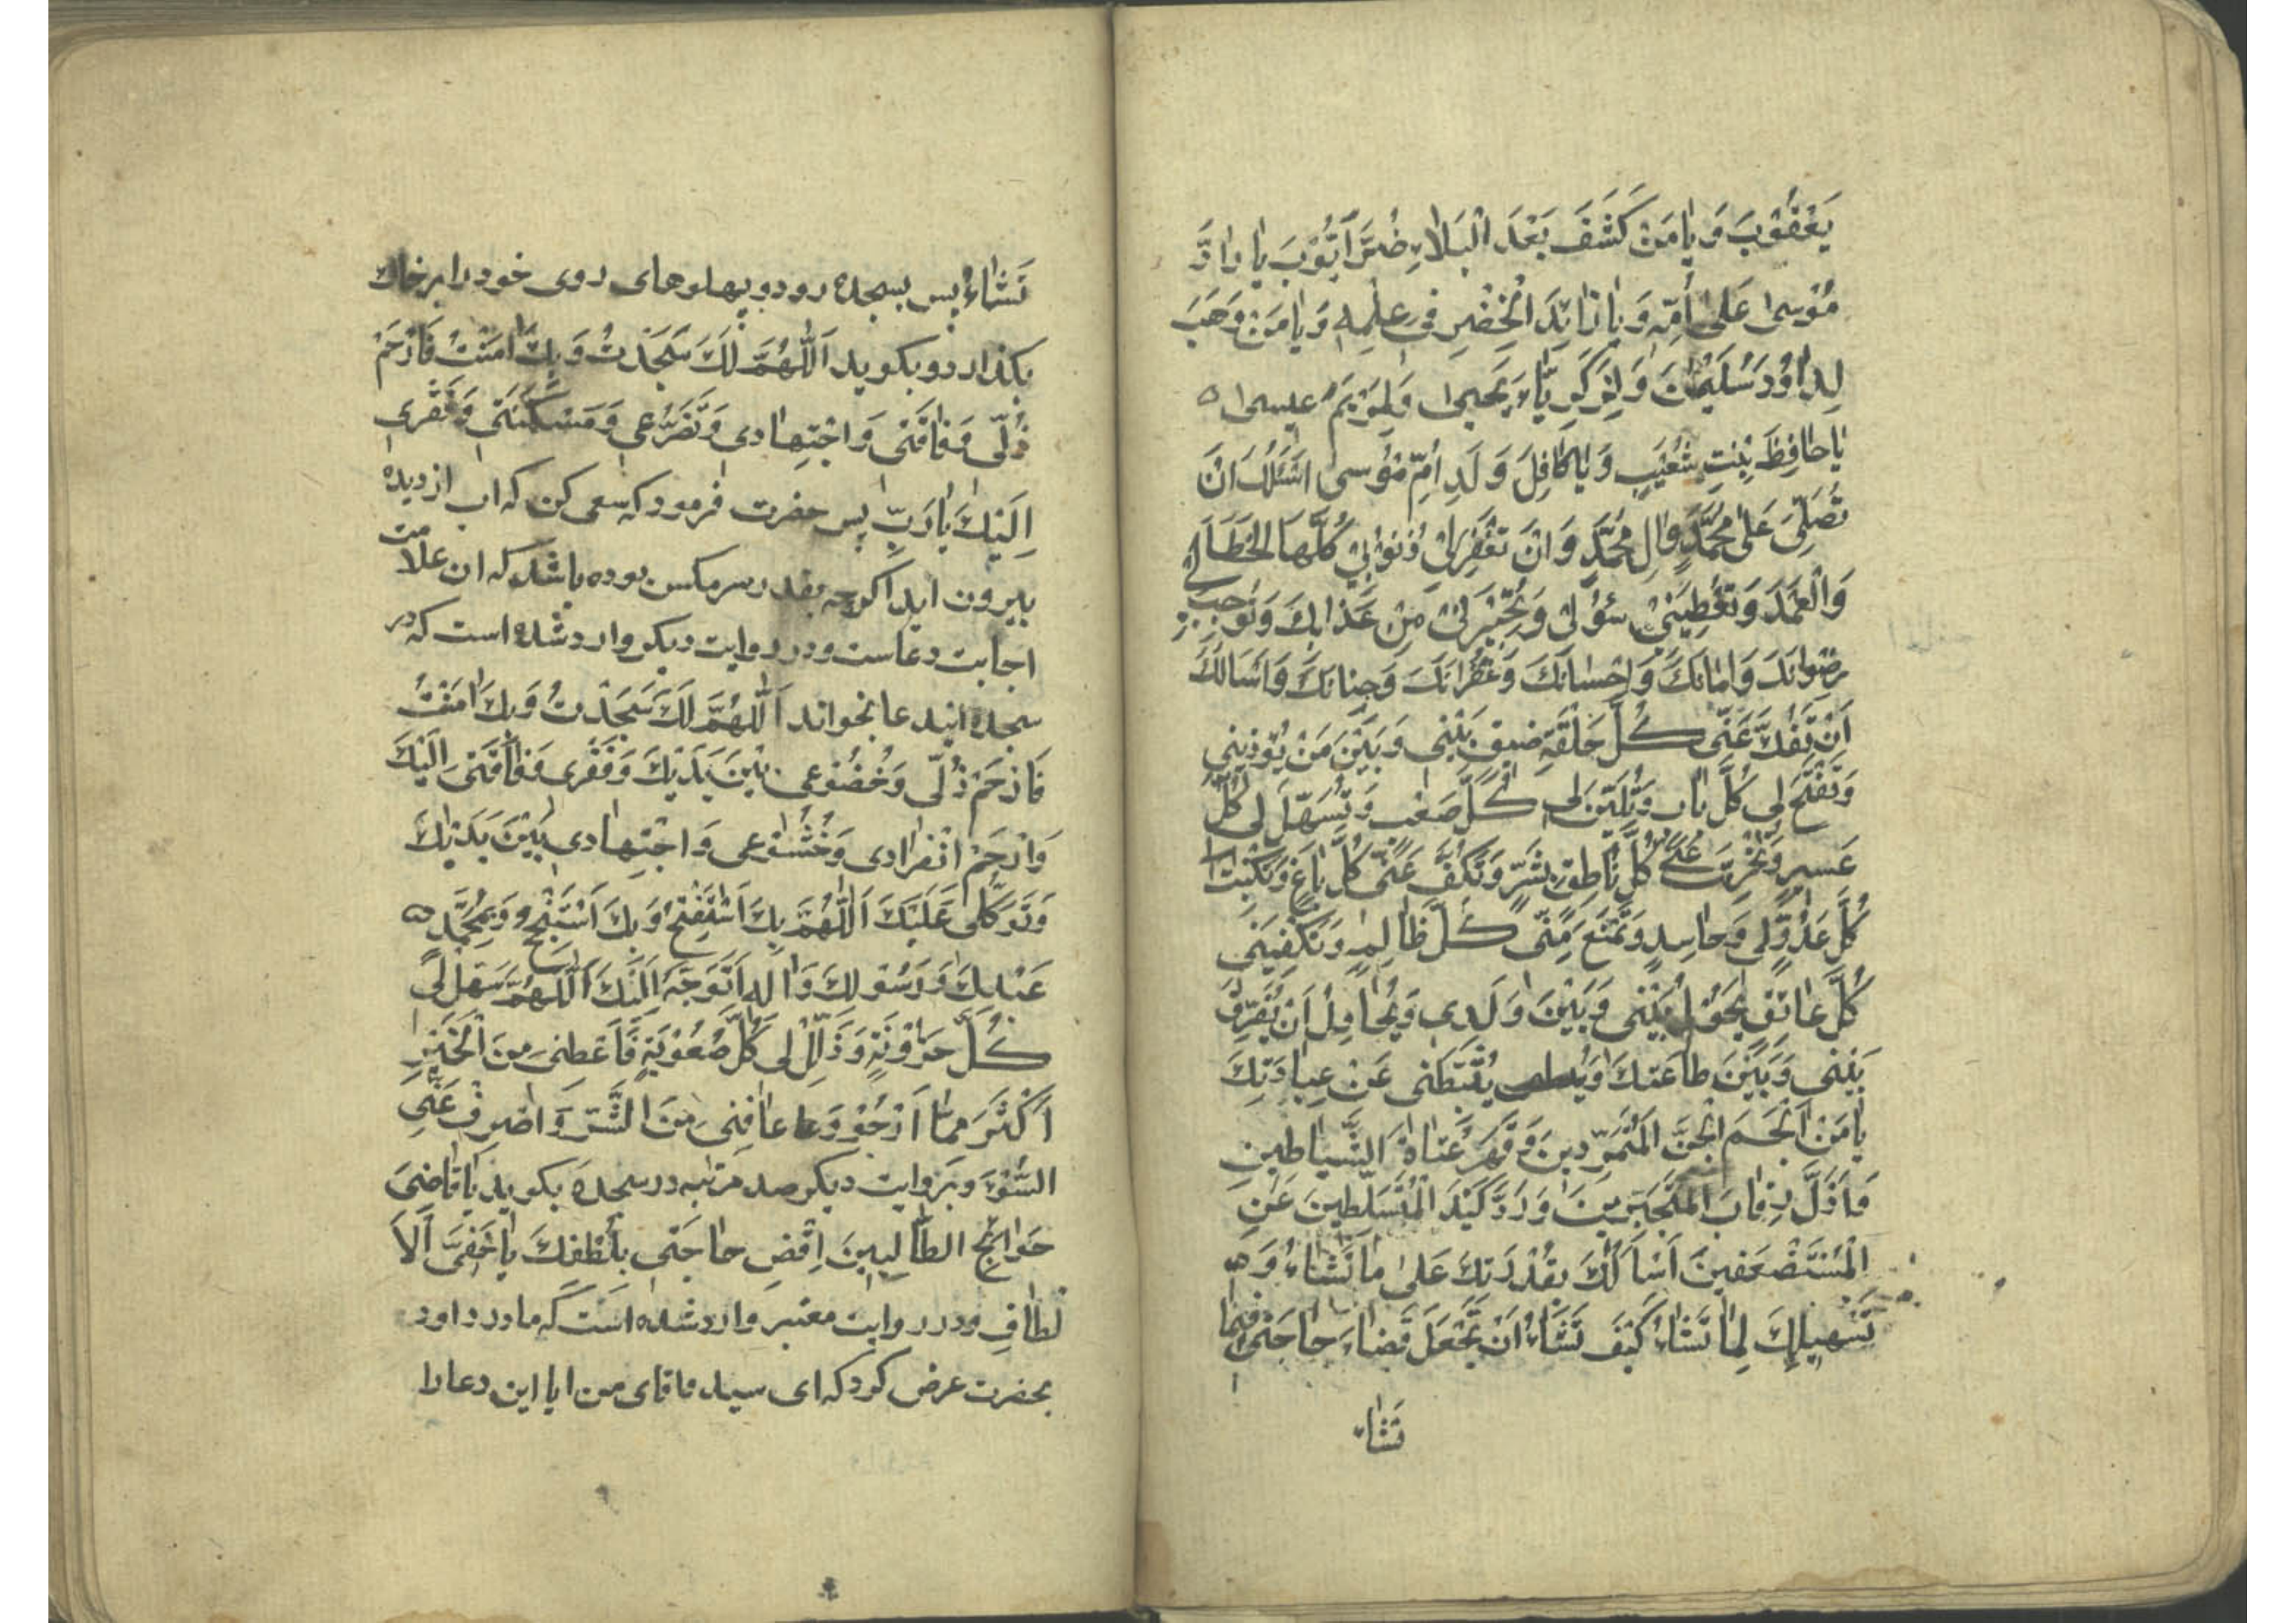 يَعْقُوْبَ وَ يٰا مَنْ كَشَفَ بَعْدَ الْبَلاٰءِ ضُرَّ اَيُّوْبَ يٰا رٰادَّ
مُوْسىٰ عَلىٰ اُمِّهِ وَ يٰا زٰائِدَ الْخِضْرِ فى عِلْمِهِ وَ يٰا مَنْ وَهَبَ
لِدٰاوُدَ سُلَيْمٰانَ وَ لِزَكَرِيّٰاءَ يَحيىٰ وَ لِمَرْيَمَ عيسىٰ ه
يٰا حٰافِظَ بِنْتِ شُعَيْبٍ وَ يٰا كٰافِلَ وَلَدِ اُمِّ مُوْسىٰ اَسْئَلُكَ اَنْ
تُصَلِّىَ عَلىٰ مُحَمَّدٍ وَ اٰلِ مُحَمَّدٍ وَ اَنْ تَغْفِرَ لىٰ ذُنُوْبىْ كُلَّهَا الْخَطَاٰ
وَ الْعَمَدَ وَ تُعْطِيَنىْ سُؤْلىْ وَ تُجيْرَنىْ مِنْ عَذٰابِكَ وَ تُوْجِبَ لى
رِضْوٰانَكَ وَ اَمٰانَكَ وَ اِحْسٰانَكَ وَ غُفْرٰانَكَ وَ جِنٰانَكَ وَ اَسَالُكَ
اَنْ تَفُكَّ عَنّى كُلَّ حَلْقَةِ ضيقٍ بَيْنى وَ بَيْنَ مَنْ يُؤذينى
وَ تَفْتَحَ لى كُلَّ بٰابٍ وَ تُلَيِّنَ لى كُلَّ صَعْبٍ وَ تُسَهِّلَ لى كُلَّ
عَسيرٍ وَ تُخْرِسَ عَنّى كُلَّ نٰاطِقٍ بِشَرٍّ وَ تَكُفَّ عَنّى كُلَّ بٰاغٍ وَ تَكْبِتَ
كُلَّ عَدُوٍّ لى وَ حٰاسِدٍ وَ تَمْنَعَ مِنّى كُلَّ ظٰالِمٍ وَ تَكْفِيَنى
كُلَّ عٰائِقٍ يَحُوْلُ بَيْنى وَ بَيْنَ وَلَدى وَ يُحٰاوِلُ اَنْ يُفَرِّقَ
بَيْنى وَ بَيْنَ طٰاعَتِكَ وَ يُثَبِّطَنى عَنْ عِبٰادَتِكَ
يٰا مَنْ اَلْجَمَ الْجِنَّ الْمُتَمَرِّدينَ وَ قَهَرَ عُتٰاةَ الشَّيٰاطينِ
وَ اَذَلَّ رِقٰابَ الْمُتَجَبِّرينَ وَ رَدَّ كَيْدَ الْمُتَسَلِّطينَ عَنِ
الْمُسْتَضْعَفينَ اَسْاَلُكَ بِقُدْرَتِكَ عَلىٰ مٰا تَشٰاءُ وَ
تَسْهيلِكَ لِمٰا تَشٰاءُ كَيْفَ تَشٰاءُ اَنْ تَجْعَلَ قَضٰاءَ حٰاجَتى فيمٰا
تَشٰاءُ
تَشٰاءُ پس بسجده رود و پهلوهاى روى خود را بر خاك
بكذارد و بكويد اَللّٰهُمَّ لَكَ سَجَدْتُ وَ بِكَ اٰمَنْتُ فَارْحَمْ
ذُلّى وَ فٰاقَتى وَ اجْتِهٰادى وَ تَضَرُّعى وَ مَسْكَنَتى وَ فَقْرى
اِلَيْكَ يٰا رَبِّ پس حضرت فرمود كه سعى كن كه اب از ديده
بيرون ايد اكرچه بقدر سر مكس بوده باشد كه ان علامت
اجابت دعاست و در روايت ديكر وارد شده است كه در
سجده ايندعا بخواند اَللّٰهُمَّ لَكَ سَجَدْتُ وَ بِكَ اٰمَنْتُ
فَارْحَمْ ذُلّى وَ خُضُوْعى بَيْنَ يَدَيْكَ وَ فَقْرى وَ فٰاقَتى اِلَيْكَ
وَ ارْحَمْ انْفِرٰادى وَ خُشُوْعى وَ اجْتِهٰادى بَيْنَ يَدَيْكَ
وَ تَوَكُّلى عَلَيْكَ اَللّٰهُمَّ بِكَ اَسْتَفْتِحُ وَ بِكَ اَسْتَنْجِحُ وَ بِمُحَمَّدٍ ه
عَبْدِكَ وَ رَسُوْلِكَ وَ اٰلِهِ اَتَوَجَّهُ اِلَيْكَ اَللّٰهُمَّ سَهِّلْ لى
كُلَّ حُزُوْنَةٍ وَ ذَلِّلْ لى كُلَّ صُعُوْبَةٍ وَ اَعْطِنى مِنَ الْخَيْرِ
اَكْثَرَ مِمّٰا اَرْجُوْ وَ عٰافِنى مِنَ الشَّرِّ وَ اصْرِفْ عَنِّى
السُّوْءَ و بروايت ديكر صد مرتبه در سجده بكويد يٰا قٰاضِىَ
حَوٰائِجِ الطّٰالِبينَ اِقْضِ حٰاجَتى بِلُطْفِكَ يٰا خَفِىَّ اْلاَ
لْطٰافِ و در روايت معتبر وارد شده است كه مادر داود
بحضرت عرض كرد كه اى سيد و اقاى من ايا اين دعا را